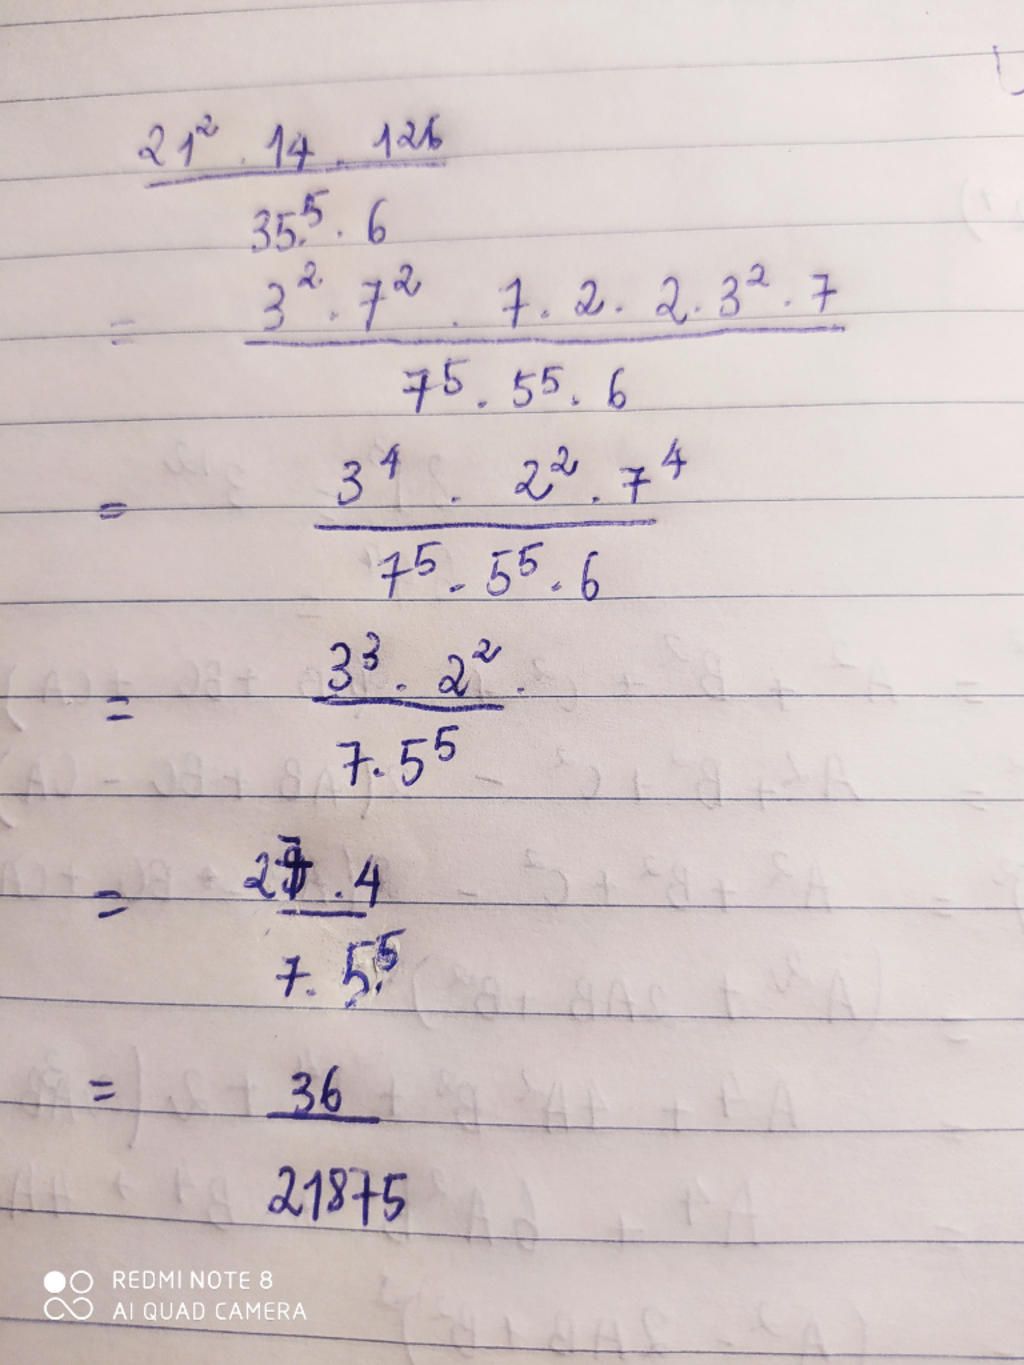 21² . 14 . 126
35⁵ . 6
= 3² . 7² . 7 . 2 . 2 . 3² . 7
7⁵ . 5⁵ . 6
= 3⁴ . 2² . 7⁴
7⁵ . 5⁵ . 6
= 3³ . 2² .
7 . 5⁵
= 27 . 4
7 . 5⁵
= 36
21875
REDMI NOTE 8
AI QUAD CAMERA